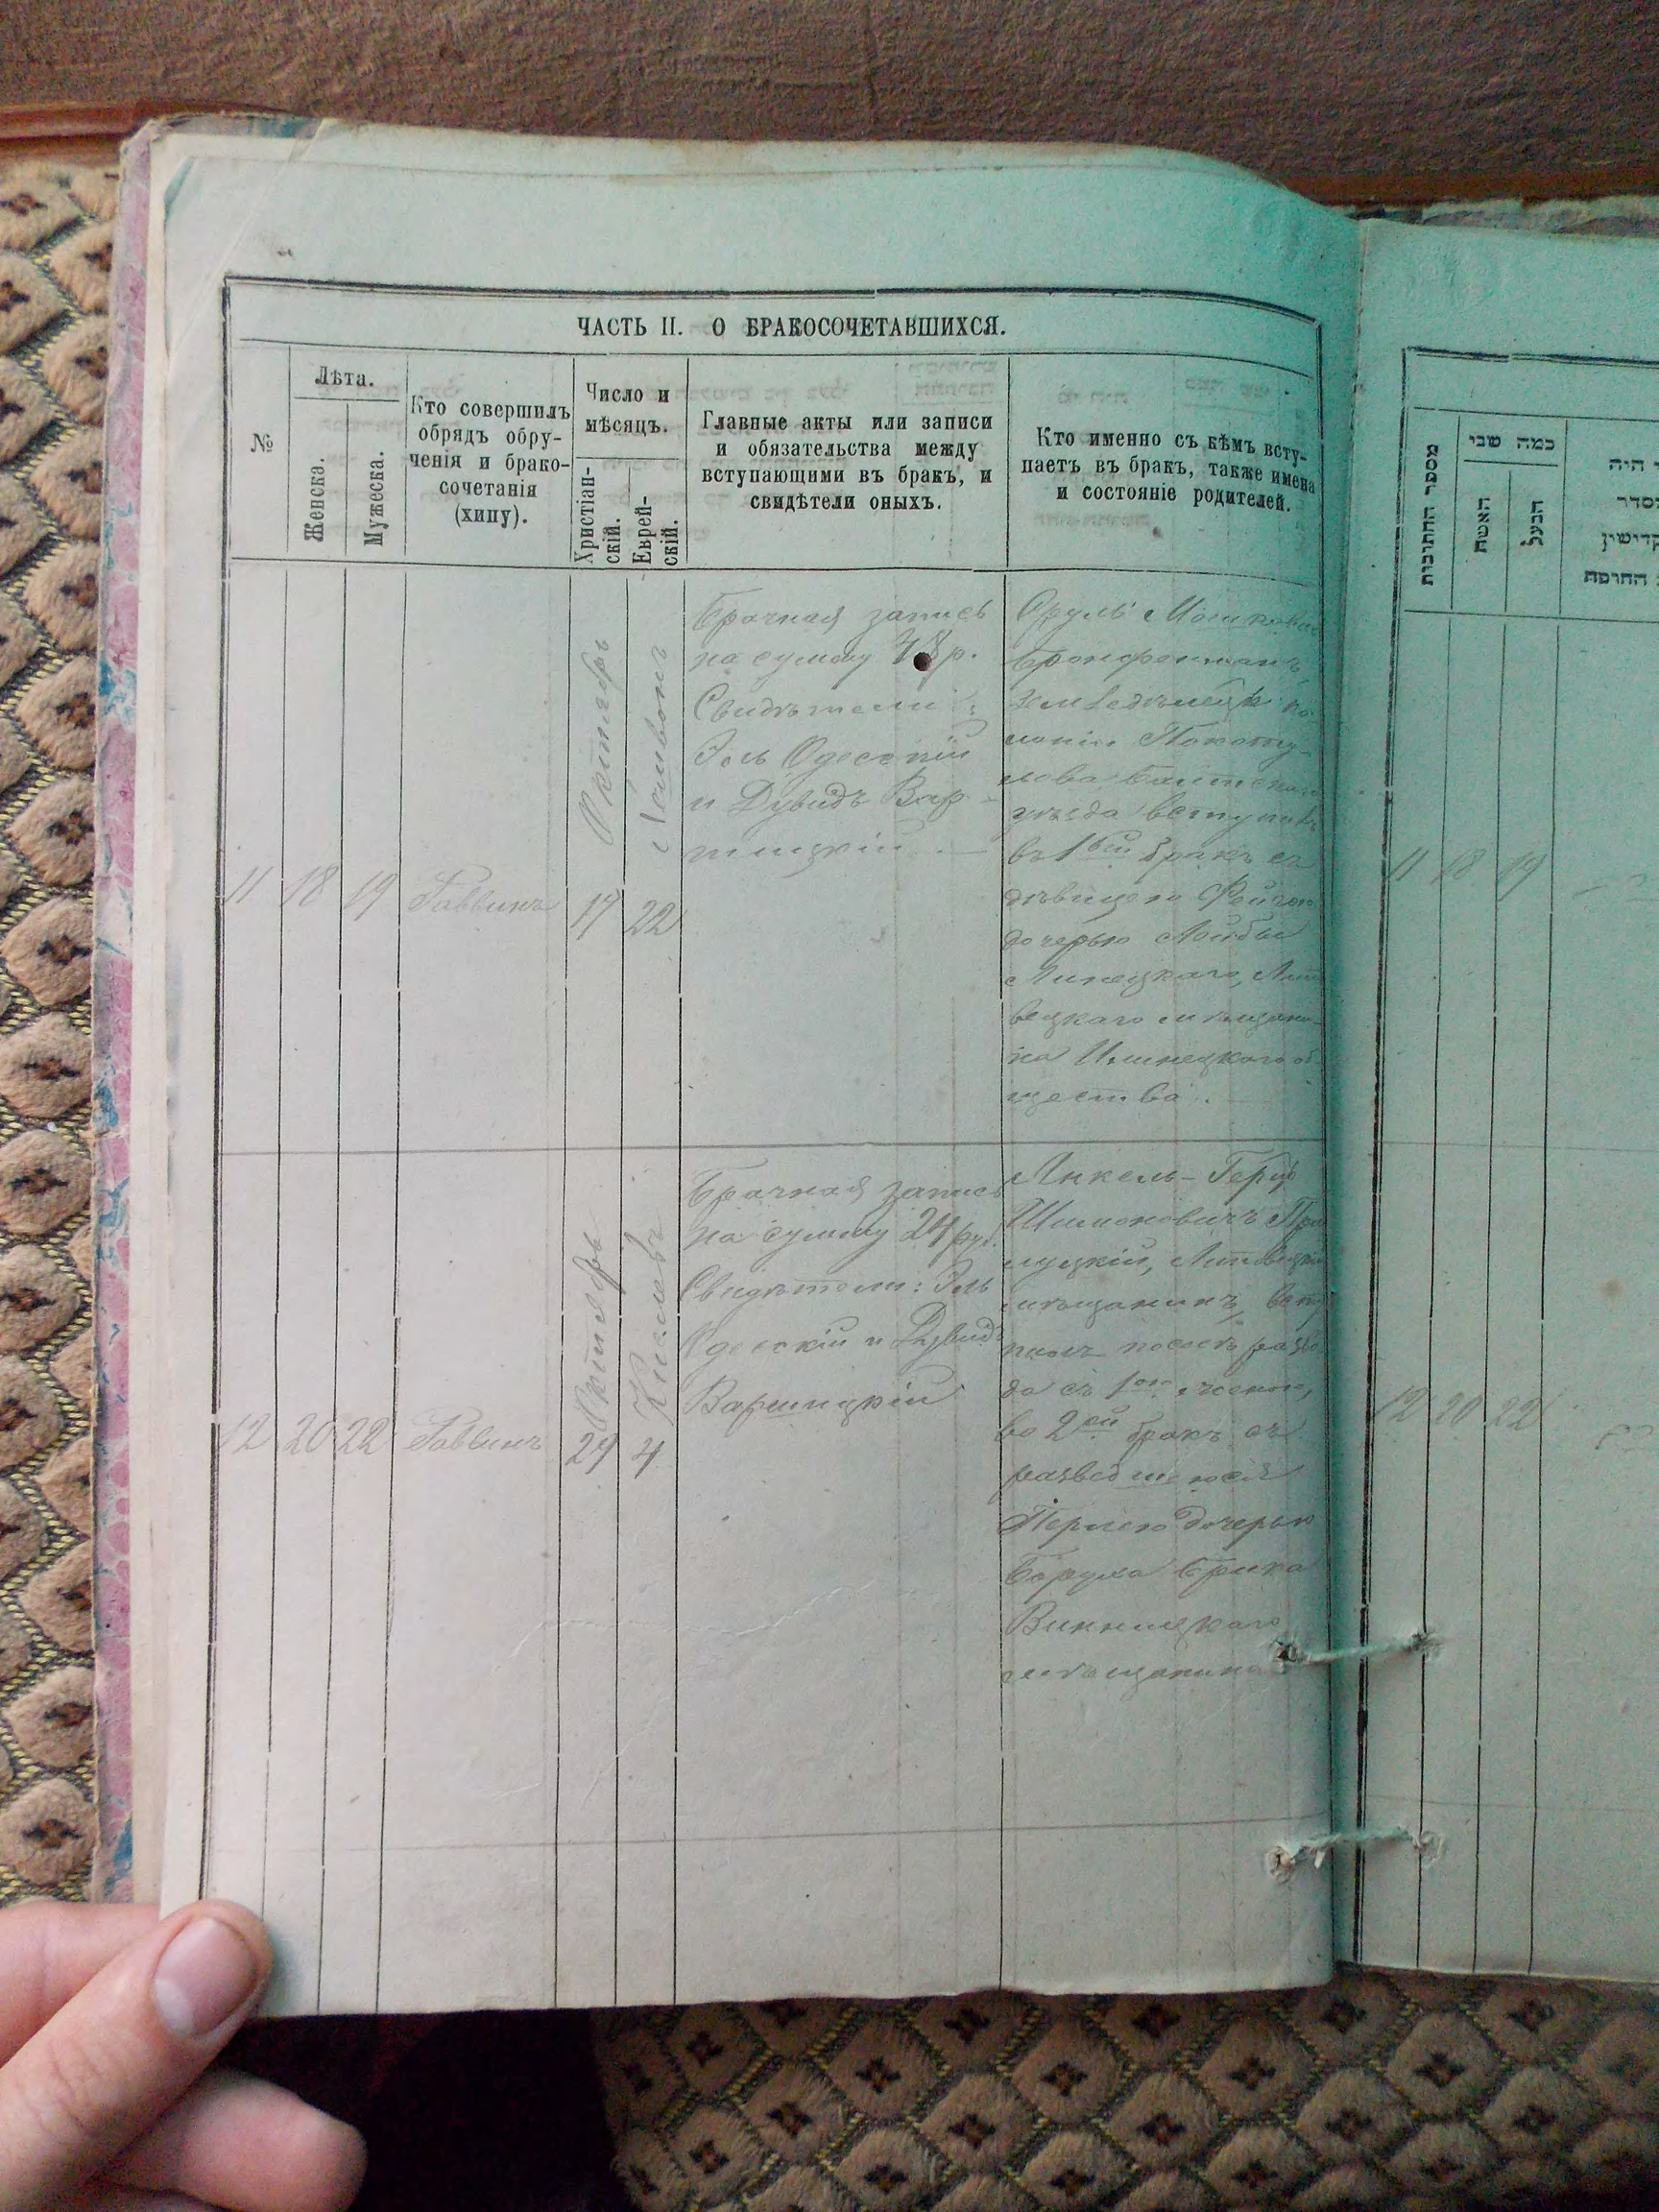 ЧАСТЬ II. О БРАКОСОЧЕТАВШИХСЯ.
№
Лѣта.
Женска.
Мужеска.
Кто совершилъ
обрядъ обру-
ченія и брако-
сочетанія
(хипу).
Число и
мѣсяцъ.
Христіан-
скій.
Еврей-
скій.
Главные акты или записи
и обязательства между
вступающими въ бракъ, и
свидѣтели оныхъ.
Кто именно съ кѣмъ всту-
паетъ въ бракъ, также имена
и состояніе родителей.
11
18
19
Раввинъ
Октябрь
17
22
Брачная запись
на сумму р.
Свидѣтели:
Эль Одесскій
и Дувидъ Вар-
шицкій.
Сруль Мошкович
Бронфенманъ,
земледѣлецъ ко
лоніи
уѣзда вступилъ
въ 1ый бракъ съ
дѣвицею
дочерью Лейбы
Липецкаго,
вецкаго мѣщани-
на об
щества.
12
20
22
Раввинъ
Октябрь
29
Кислевъ
4
Брачная запись
на сумму 24 руб.
Свидѣтели: Эль
Одесскій и Дувидъ
Варшицкій
Янкель-Герш
Шимоновичъ При
луцкій,
мѣщанинъ, всту
пилъ послѣ разво
да съ 1ою женою,
во 2ой бракъ съ
разведшеюся
Перлею дочерью
Боруха
Винницкаго
мѣщанина
מספר החתונות
כמה שני
האשה
הבעל
היה
סדר
קדישין
החופה
11
18
19
12
20
22